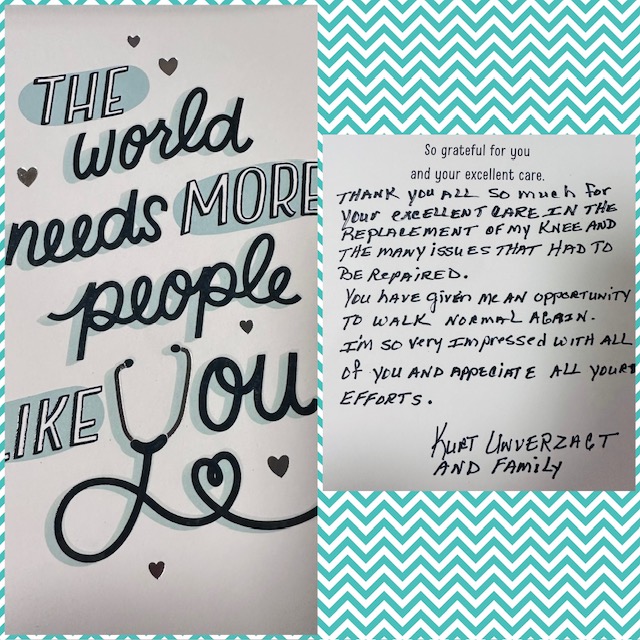 THE
world
needs MORE
people
LIKE You
So grateful for you
and your excellent care.
THANK YOU ALL SO much for
your excellent care in the
replacement of my knee and
the many issues that had to
be repaired.
You have given me an opportunity
to walk normal again.
I'm so very impressed with all
of you and appeciate all your
efforts.
Kurt Unverzagt
and family